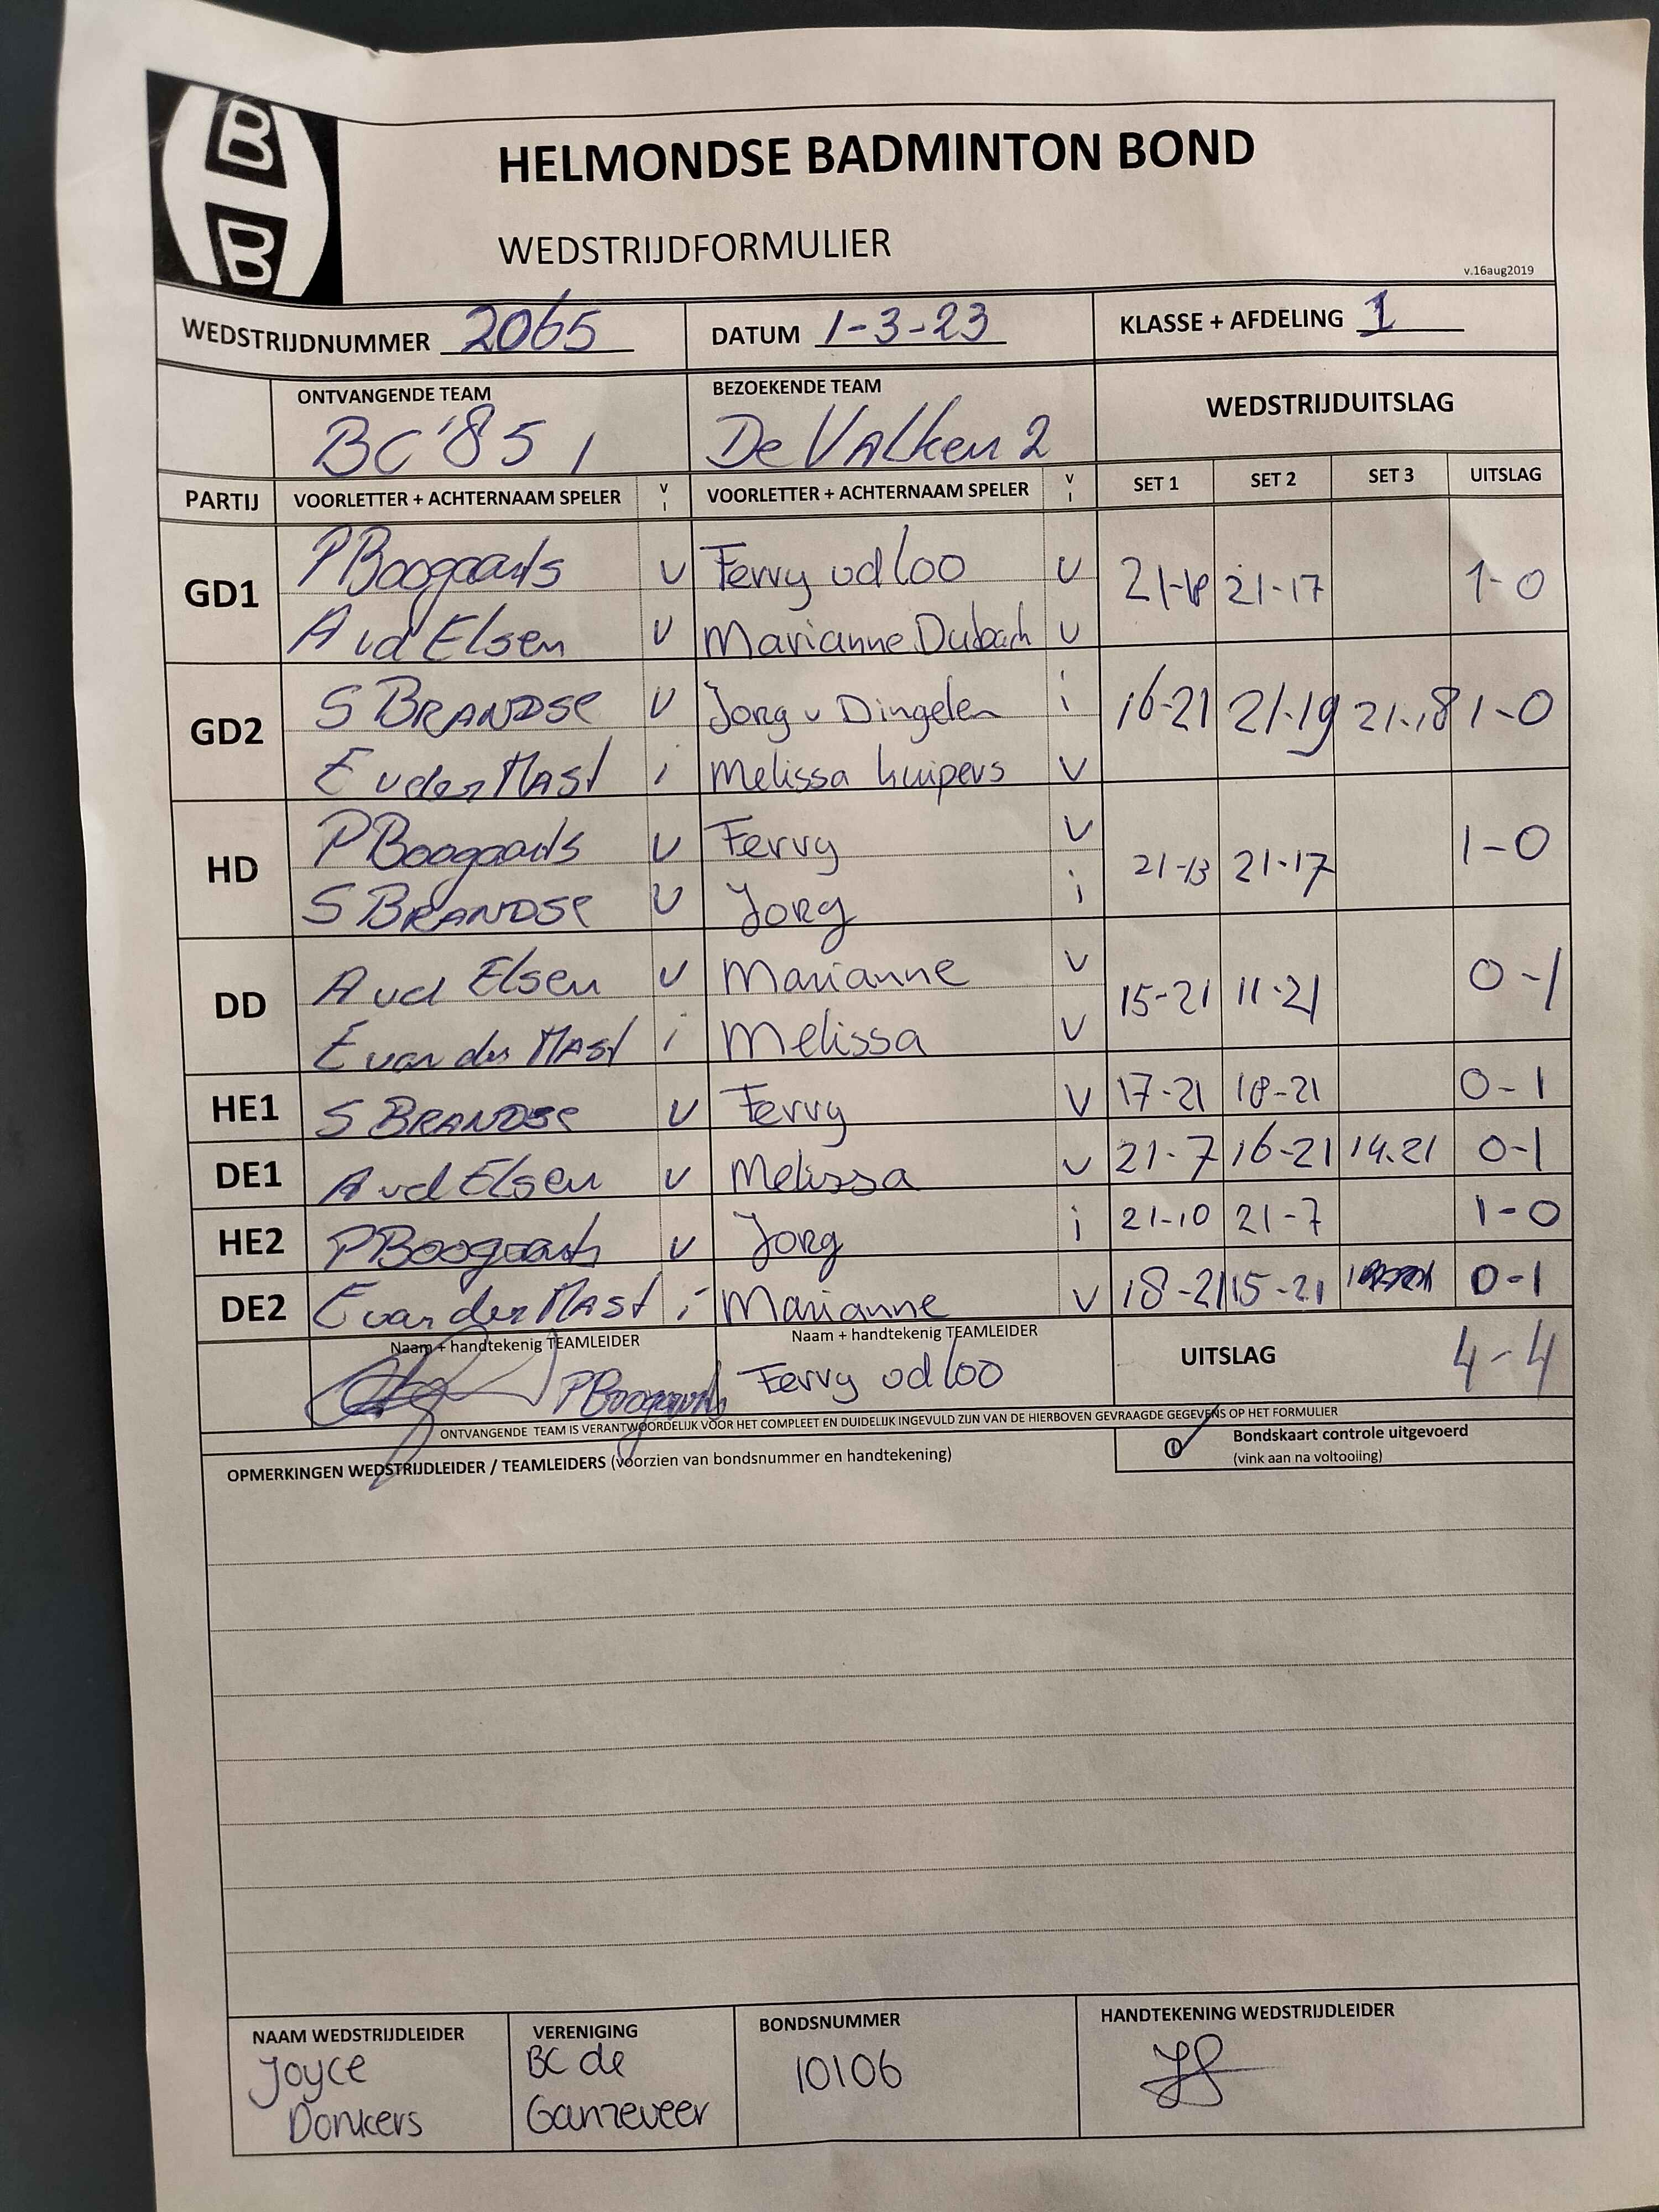 B
B
HELMONDSE BADMINTON BOND
WEDSTRIJDFORMULIER
v.16aug2019
WEDSTRIJDNUMMER 2065 DATUM 1-3-23 KLASSE + AFDELING 1
ONTVANGENDE TEAM BEZOEKENDE TEAM WEDSTRIJDUITSLAG
BC'85 1 De Valken 2
PARTIJ VOORLETTER + ACHTERNAAM SPELER V I VOORLETTER + ACHTERNAAM SPELER V I SET 1 SET 2 SET 3 UITSLAG
GD1 P Boogaards v Ferry vd Loo v 21-18 21-17 1-0
A vd Elsen v Marianne Dubach v
GD2 S BRANDSE v Jorg v Dingelen i 16-21 21-19 21-18 1-0
E v der Mast i Melissa kuipers v
HD P Boogaards v Ferry v 21-13 21-17 1-0
S BRANDSE v Jorg i
DD A vd Elsen v Marianne v 15-21 11-21 0-1
E van der Mast i Melissa v
HE1 S BRANDSE v Ferry v 17-21 18-21 0-1
DE1 A vd Elsen v Melissa v 21-7 16-21 14-21 0-1
HE2 P Boogaards v Jorg i 21-10 21-7 1-0
DE2 E van der Mast i Marianne v 18-21 15-21 0-1
Naam + handtekenig TEAMLEIDER Naam + handtekenig TEAMLEIDER UITSLAG 4-4
P Boogaards Ferry vd Loo
ONTVANGENDE TEAM IS VERANTWOORDELIJK VOOR HET COMPLEET EN DUIDELIJK INGEVULD ZIJN VAN DE HIERBOVEN GEVRAAGDE GEGEVENS OP HET FORMULIER
OPMERKINGEN WEDSTRIJDLEIDER / TEAMLEIDERS (voorzien van bondsnummer en handtekening)
Bondskaart controle uitgevoerd
(vink aan na voltooiing)
NAAM WEDSTRIJDLEIDER VERENIGING BONDSNUMMER HANDTEKENING WEDSTRIJDLEIDER
Joyce BC de 10106
Donkers Ganzeveer